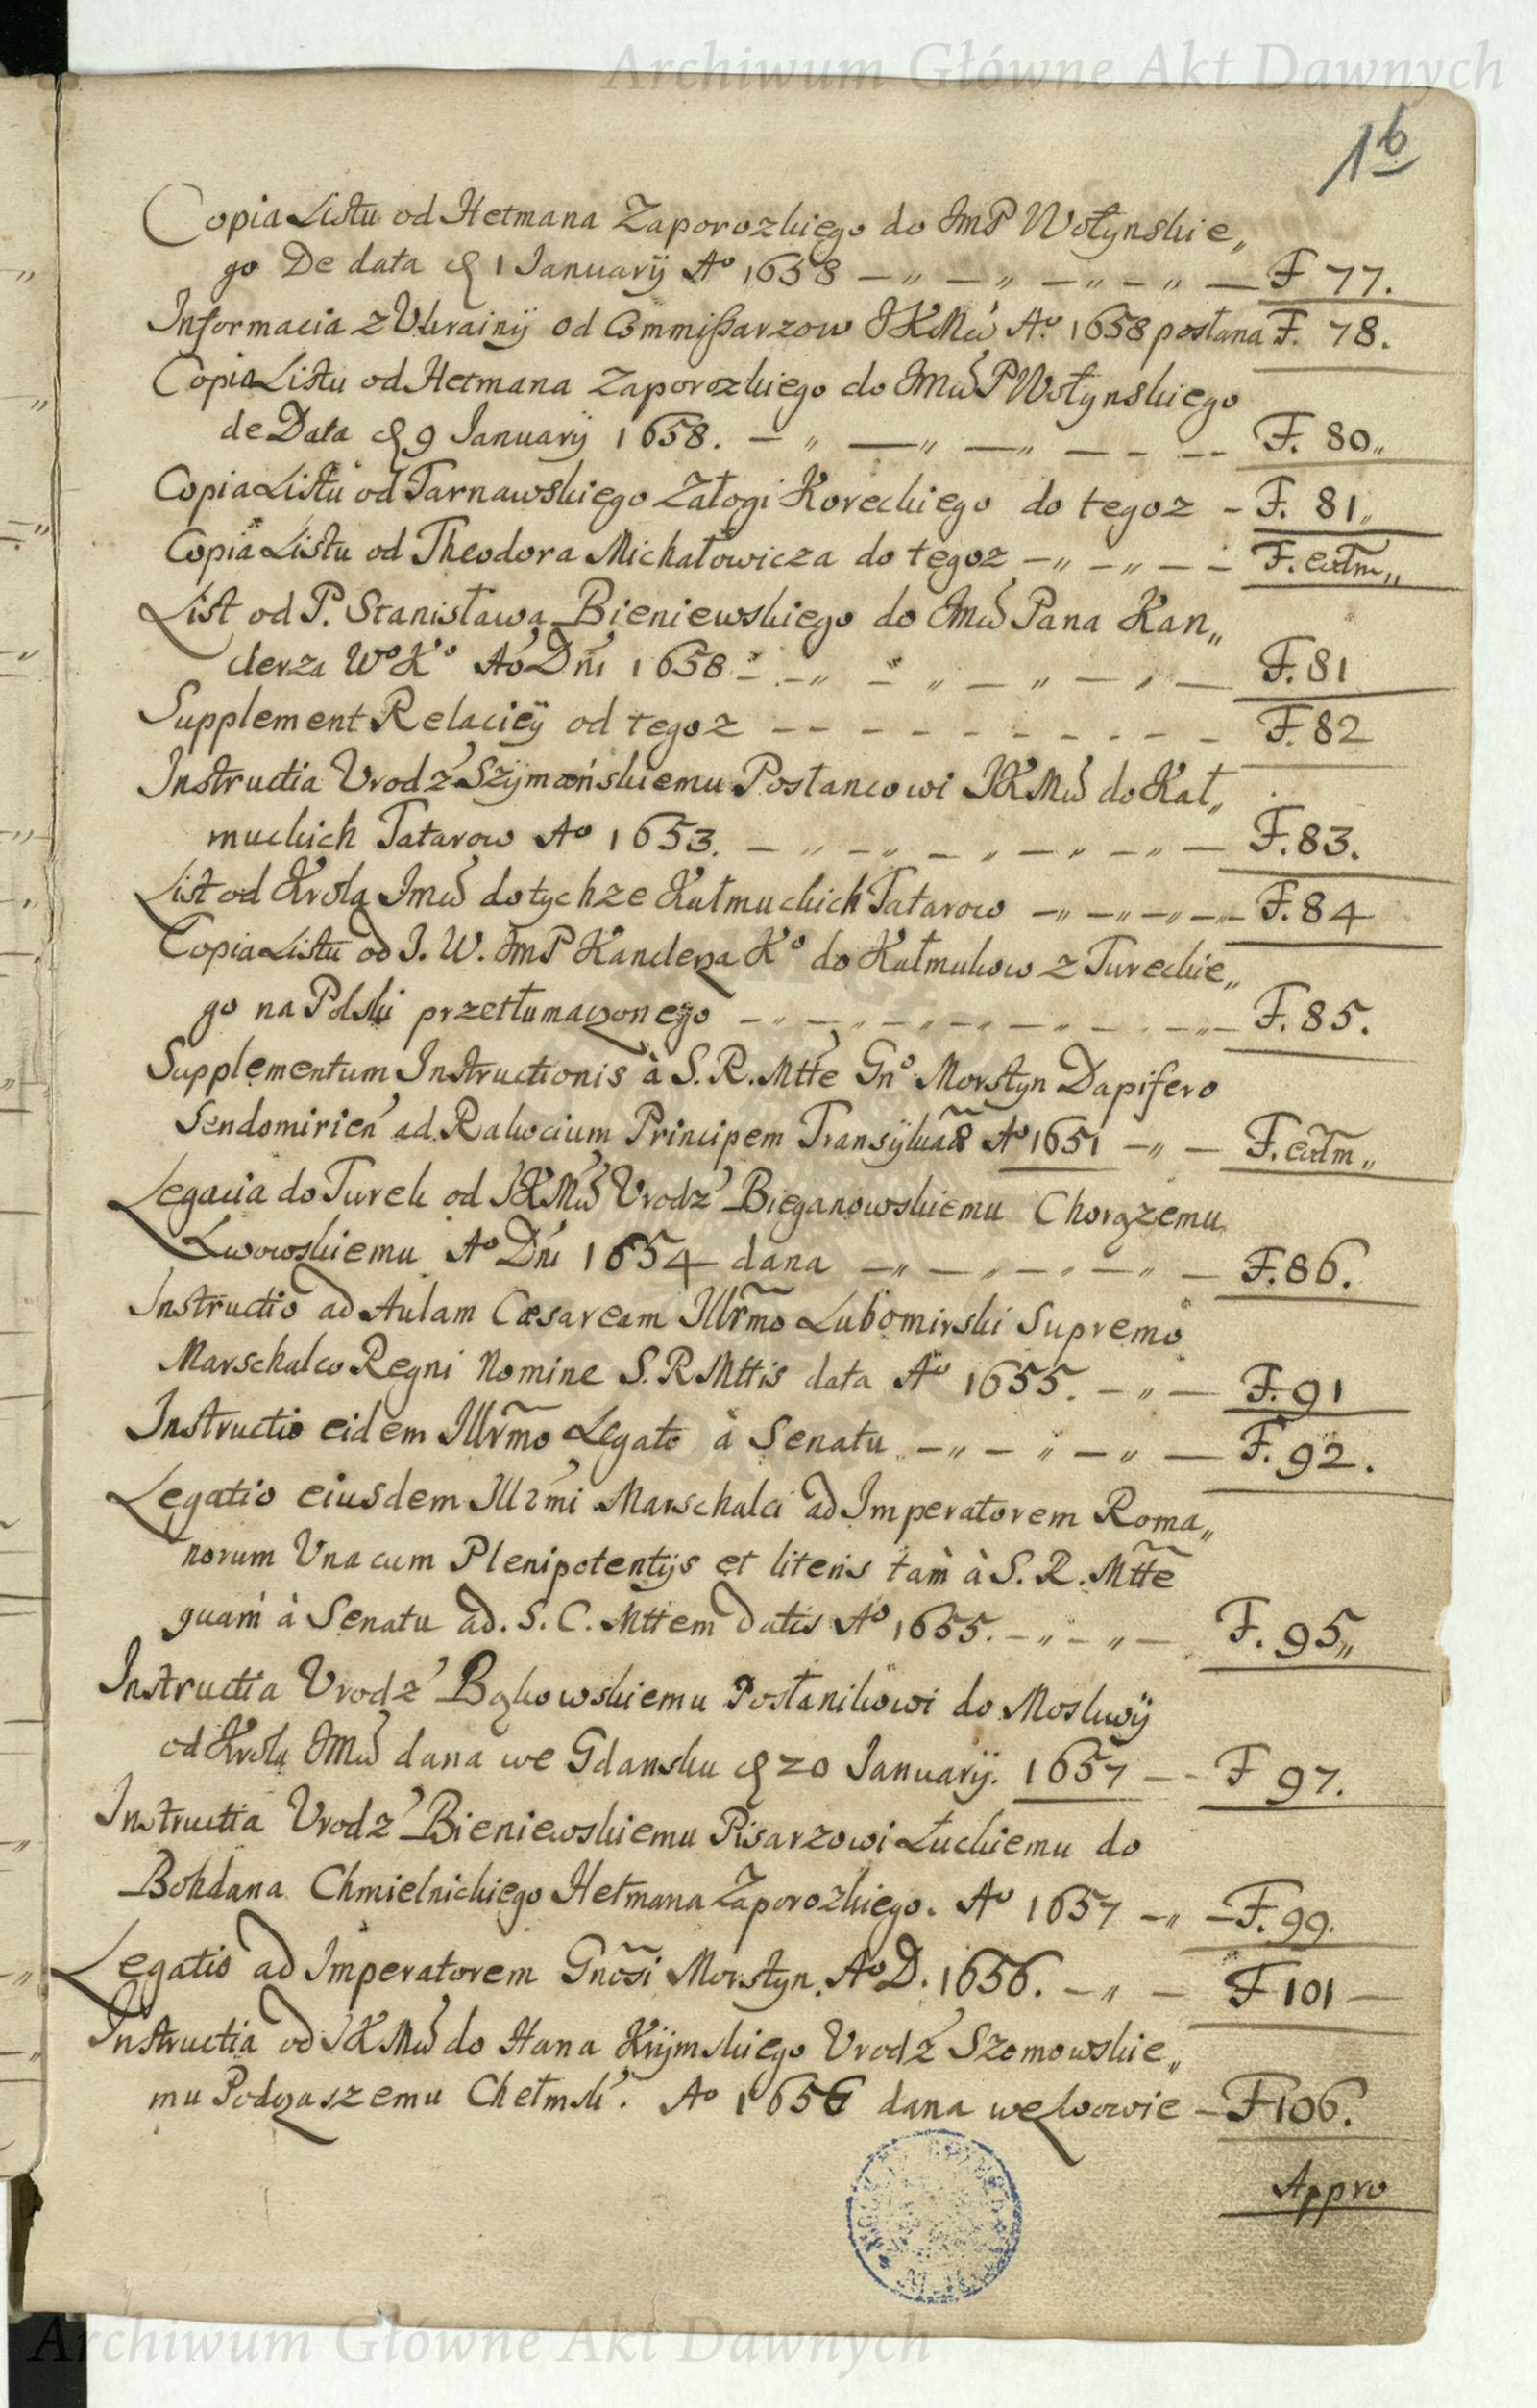 Archiwum Główne Akt Dawnych
1b
Copia Listu od Hetmana Zaporozkiego do JmP Wołynskie„
go De data d 1 Januarÿ Aº 1658 — „ — „ — „ — „ — F 77.
Informacia z Ukrainÿ od Commißarzow JKMći Aº 1658 posłana F. 78.
Copia Listu od Hetmana Zaporozkiego do JMći P Wołynskiego
de Data d 9 Januarÿ 1658. — „ — „ — „ — - -- F. 80„
Copia Listu od Tarnawskiego Załogi Koreckiego do tegoz - F. 81„
Copia Listu od Theodora Michałowicza do tegoz — „ — „ — - F. eadm„
List od P. Stanisława Bieniewskiego do JMći Pana Kan„
clerza Wº Kº Aº Dńi 1658 - — „ — „ — „ — , — F. 81
Supplement Relaciÿ od tegoz - - - - - - - - - - F. 82
Instructia Urodz' Szÿmańskiemu Posłancowi JKMći do Kał„
muckich Tatarow Aº 1653. — „ — „ — „ — „ — „ — F. 83.
List od Krola Jmći do tychze Kałmuckich Tatarow — „ — „ — „ — F. 84
Copia Listu od J. W. JmP Kanclerza Kº do Kałmukow z Tureckie„
go na Polski przetłumaczonego — „ — „ — „ — „ — „ — F. 85.
Supplementum Instructionis à S. R. Mtte Gnº Morstyn Dapifero
Sendomirień ad Rakocium Principem Transÿluãæ Aº 1651 — „ — F. eadm„
Legacia do Turek od JKMći Urodz' Bieganowskiemu Chorązemu
Lwowskiemu Aº Dńi 1654 dana — „ — „ — „ — „ — F. 86.
Instructio ad Aulam Cæsaream Illr̃mo Lubomirski Supremo
Marschalco Regni Nomine S. R Mttis data Aº 1655. — „ — F. 91
Instructio eidem Illr̃mo Legato à Senatu — „ — „ — „ — F. 92.
Legatio eiusdem Illrmi Marschalci ad Imperatorem Roma„
norum Una cum Plenipotentÿs et literis tam à S. R. Mtt̃e
quam à Senatu ad. S. C. Mttem datis Aº 1655. — „ — „ — F. 95„
Instructia Urodz' Bąkowskiemu Posłanikowi do Moskwÿ
od Krola JMći dana we Gdansku d 20 Januarÿ. 1657 — - F 97.
Instructia Urodz' Bieniewskiemu Pisarzowi Łuckiemu do
Bohdana Chmielnickiego Hetmana Zaporozkiego. Aº 1657 — „ — F. 99.
Legatio ad Imperatorem Gnõsi Morstyn. Aº D. 1656. — „ — F 101 —
Instructia od JKMći do Hana Krÿmskiego Urodz' Szomowskie„
mu Podczaszemu Chełmsk'. Aº 1656 dana we Lwowie — F 106.
Appro
Archiwum Główne Akt Dawnych